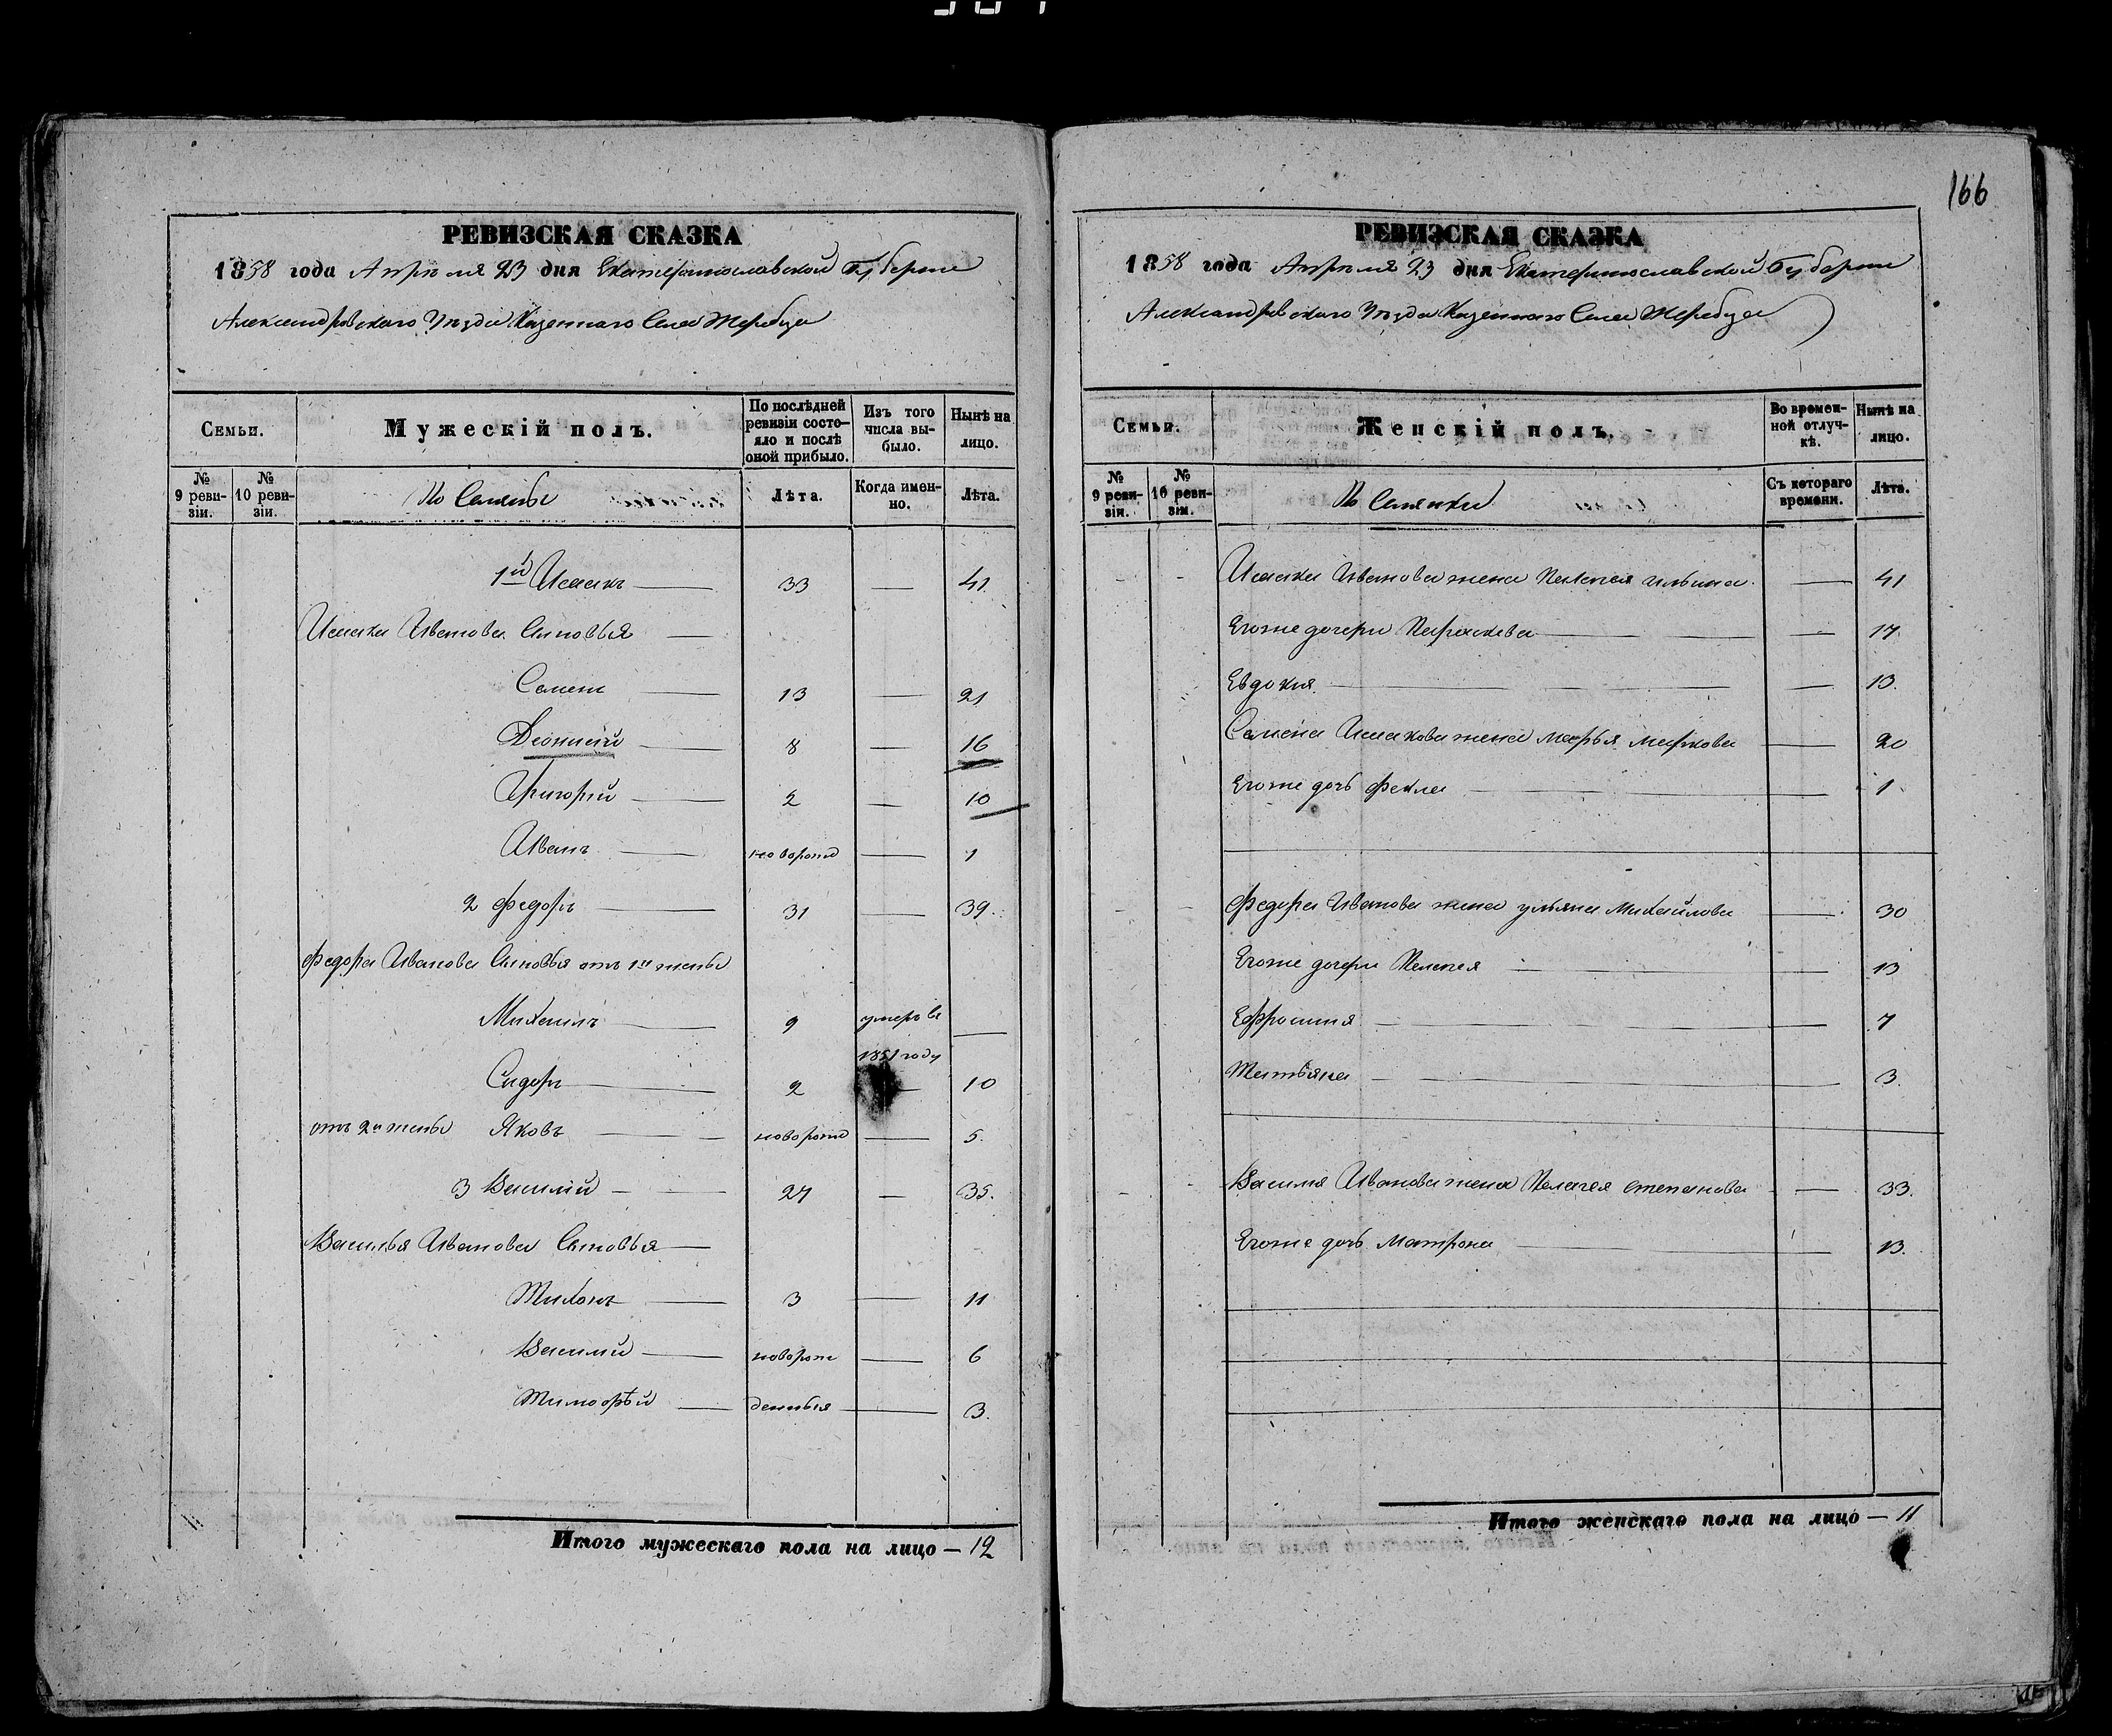 166
РЕВИЗСКАЯ СКАЗКА
1858 года Апреля 23 дня Екатеринославской Губернии
Александровскаго Уезда Казеннаго Села Жеребца
Семьи.
Мужескій полъ.
По послѣдней ревизіи состояло и послѣ оной прибыло.
Изъ того числа выбыло.
Нынѣ на лицо.
№ 9 ревизіи.
№ 10 ревизіи.
Лѣта.
Когда именно.
Лѣта.
1й Исаакъ — 33 — 41
Исаака Иванова Сыновья —
Семенъ — 13 — 21
Деонисій — 8 — 16
Григорій — 2 — 10
Иванъ — новорожд — 1
2 Федоръ — 31 — 39.
Федора Иванова Сыновья отъ 1й жены
Михаилъ — 9 умеръ въ 1851 году —
Сидоръ — 2 — 10
отъ 2й жены Яковъ — новорожд — 5.
3 Василий — 27 — 35.
Василья Иванова Сыновья —
Тихонъ — 3 — 11
Василий — новорож — 6
Тимофѣй — денныя — 3.
Итого мужескаго пола на лицо — 12
РЕВИЗСКАЯ СКАЗКА
1858 года Апреля 23 дня Екатеринославской Губернии
Александровскаго Уезда Казеннаго Села Жеребца
Семьи.
Женскій полъ.
Во временной отлучкѣ.
Нынѣ на лицо.
№ 9 ревизіи.
№ 10 ревизіи.
Съ котораго времени.
Лѣта.
Исаака Иванова жена Пелагея ильина — 41
Егоже дочери Параскева — — 17
Евдокия — — 13.
Семена Исаакова жена марья маркова — 20
Егоже дочь Фекла — — 1
Федора Иванова жена ульяна Михайлова — 30
Егоже дочери Пелагея — — 13
Ефросиния — — 7
Татьяна — — 3.
Василия Иванова жена Пелагея степанова — 33.
Егоже дочь Матрона — — 13.
Итого женскаго пола на лицо — 11